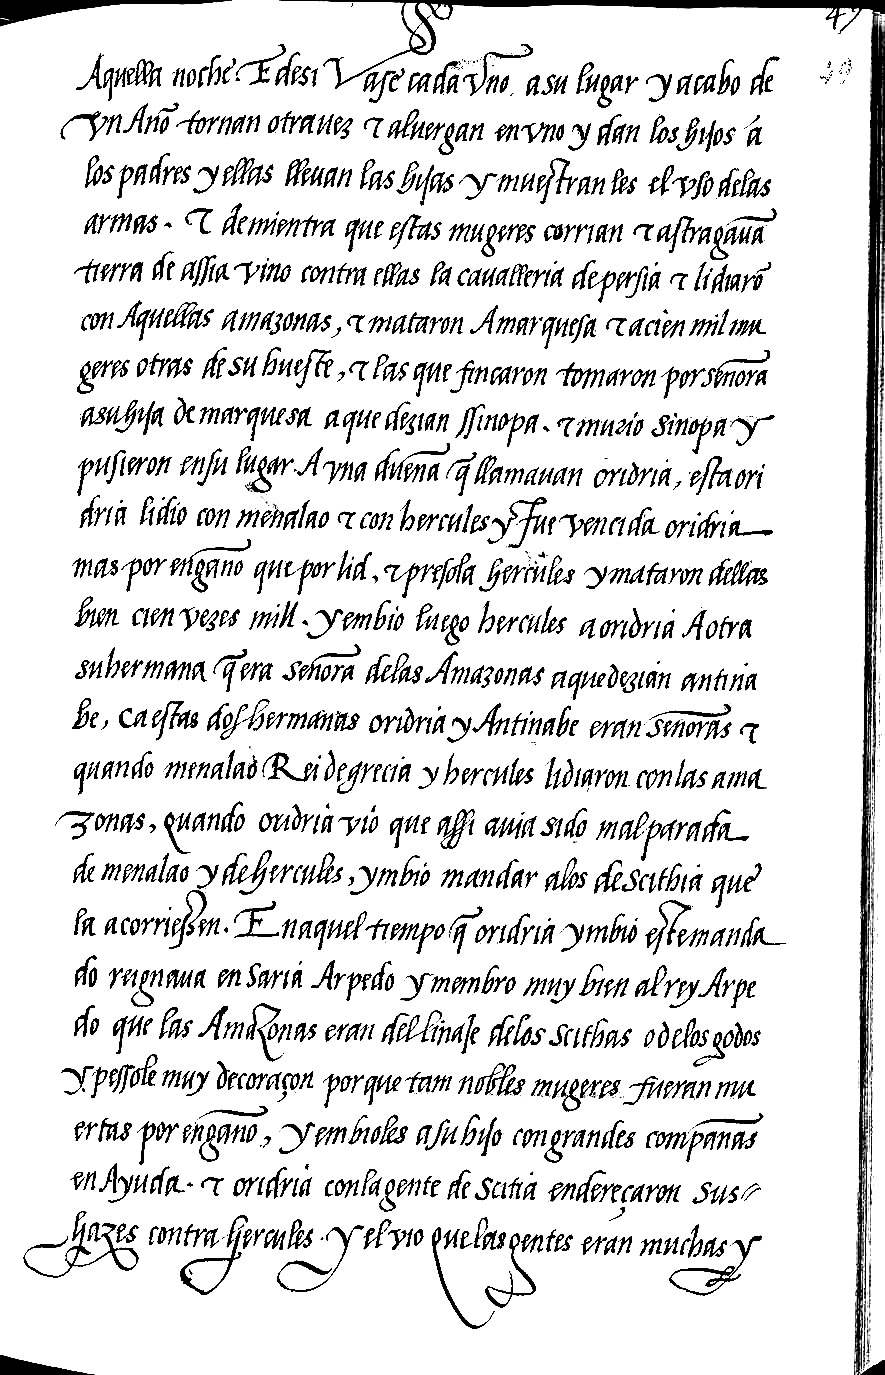 49
49
Aquella noche. E desi Vase cada Vno, a su lugar y acabo de
vn Año tornan otra uez τ aluergan en vno y dan los hijos á
los padres y ellas lleuan las hijas y muestran les el vso delas
armas. τ demientra que estas mugeres corrian τ astragauã
tierra de assia vino contra ellas la cauallería de persia τ lidiarõ
con Aquellas amazonas, τ mataron Amarquesa τ acien mil mu
geres otras de su hueste, τ las que fincaron tomaron por señora
asu hija de marquesa a que dezian ssinopa. τ murio sinopa y
pusieron ensu lugar A vna dueña q̃ llamauan oridria, esta ori
dria lidio con menalao τ con hercules y fue vencida oridria
mas por engaño que por lid, τ presola hercules y mataron dellas
bien cien vezes mill. y embio luego hercules a oridria A otra
su hermana q̃ era señora delas Amazonas aque dezian antina
be, ca estas dos hermanas oridria y Antinabe eran señoras τ
quando menalao Rei de grecia y hercules lidiaron con las ama
zonas, quando oridria vio que assi auia sido mal parada
de menalao y de hercules, ymbio mandar alos de Scithia que
la acorriessen. En aquel tiempo q̃ oridria ymbio este manda
do reignaua en Saria Arpedo y membro muy bien al rey Arpe
do que las Amazonas eran del linaje delos Scithas o delos godos
y pessole muy de coraçon por que tam nobles mugeres fueran mu
ertas por engaño, y embioles a su hijo con grandes compañas
en Ayuda. τ oridria con la gente de Scitia endereçaron sus
hazes contra hercules. y el vio que las gentes eran muchas y